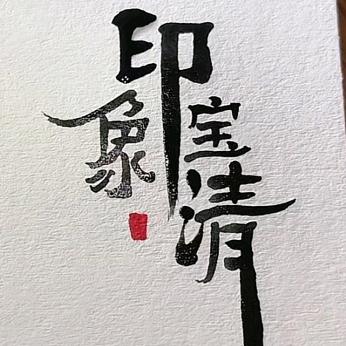 印象
宝清